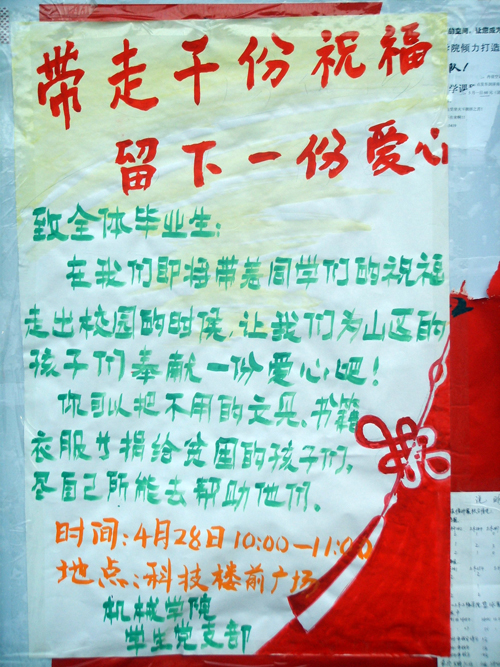 带走千份祝福
留下一份爱心
致全体毕业生:
在我们即将带着同学们的祝福
走出校园的时候,让我们为山区的
孩子们奉献一份爱心吧!
你可以把不用的文具、书籍
衣服等捐给贫困的孩子们,
尽自己所能去帮助他们、
时间:4月28日10:00—11:00
地点:科技楼前广场
机械学院
学生党支部